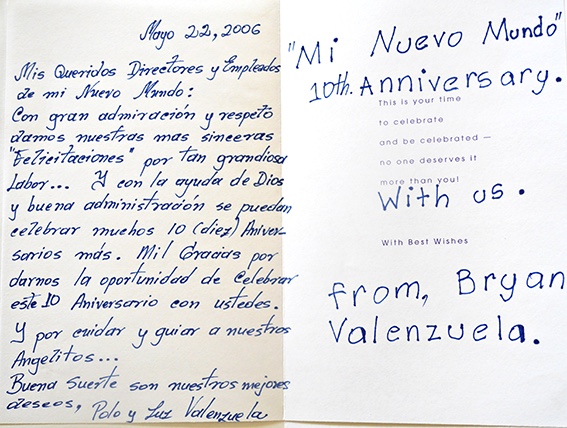 Mayo 22, 2006
Mis Queridos Directores y Empleados
de mi Nuevo Mundo:
Con gran admiración y respeto
damos nuestras mas sinceras
"Felicitaciones" por tan grandiosa
Labor... Y con la ayuda de Dios
y buena administración se puedan
celebrar muchos 10 (diez) Aniver-
sarios más. Mil Gracias por
darnos la oportunidad de Celebrar
este 10 Aniversario con ustedes.
Y por cuidar y guiar a nuestros
Angelitos...
Buena Suerte son nuestros mejores
deseos, Polo y Luz Valenzuela
"Mi Nuevo Mundo"
10th. Anniversary.
This is your time
to celebrate
and be celebrated —
no one deserves it
more than you!
With us.
With Best Wishes
from, Bryan
Valenzuela.